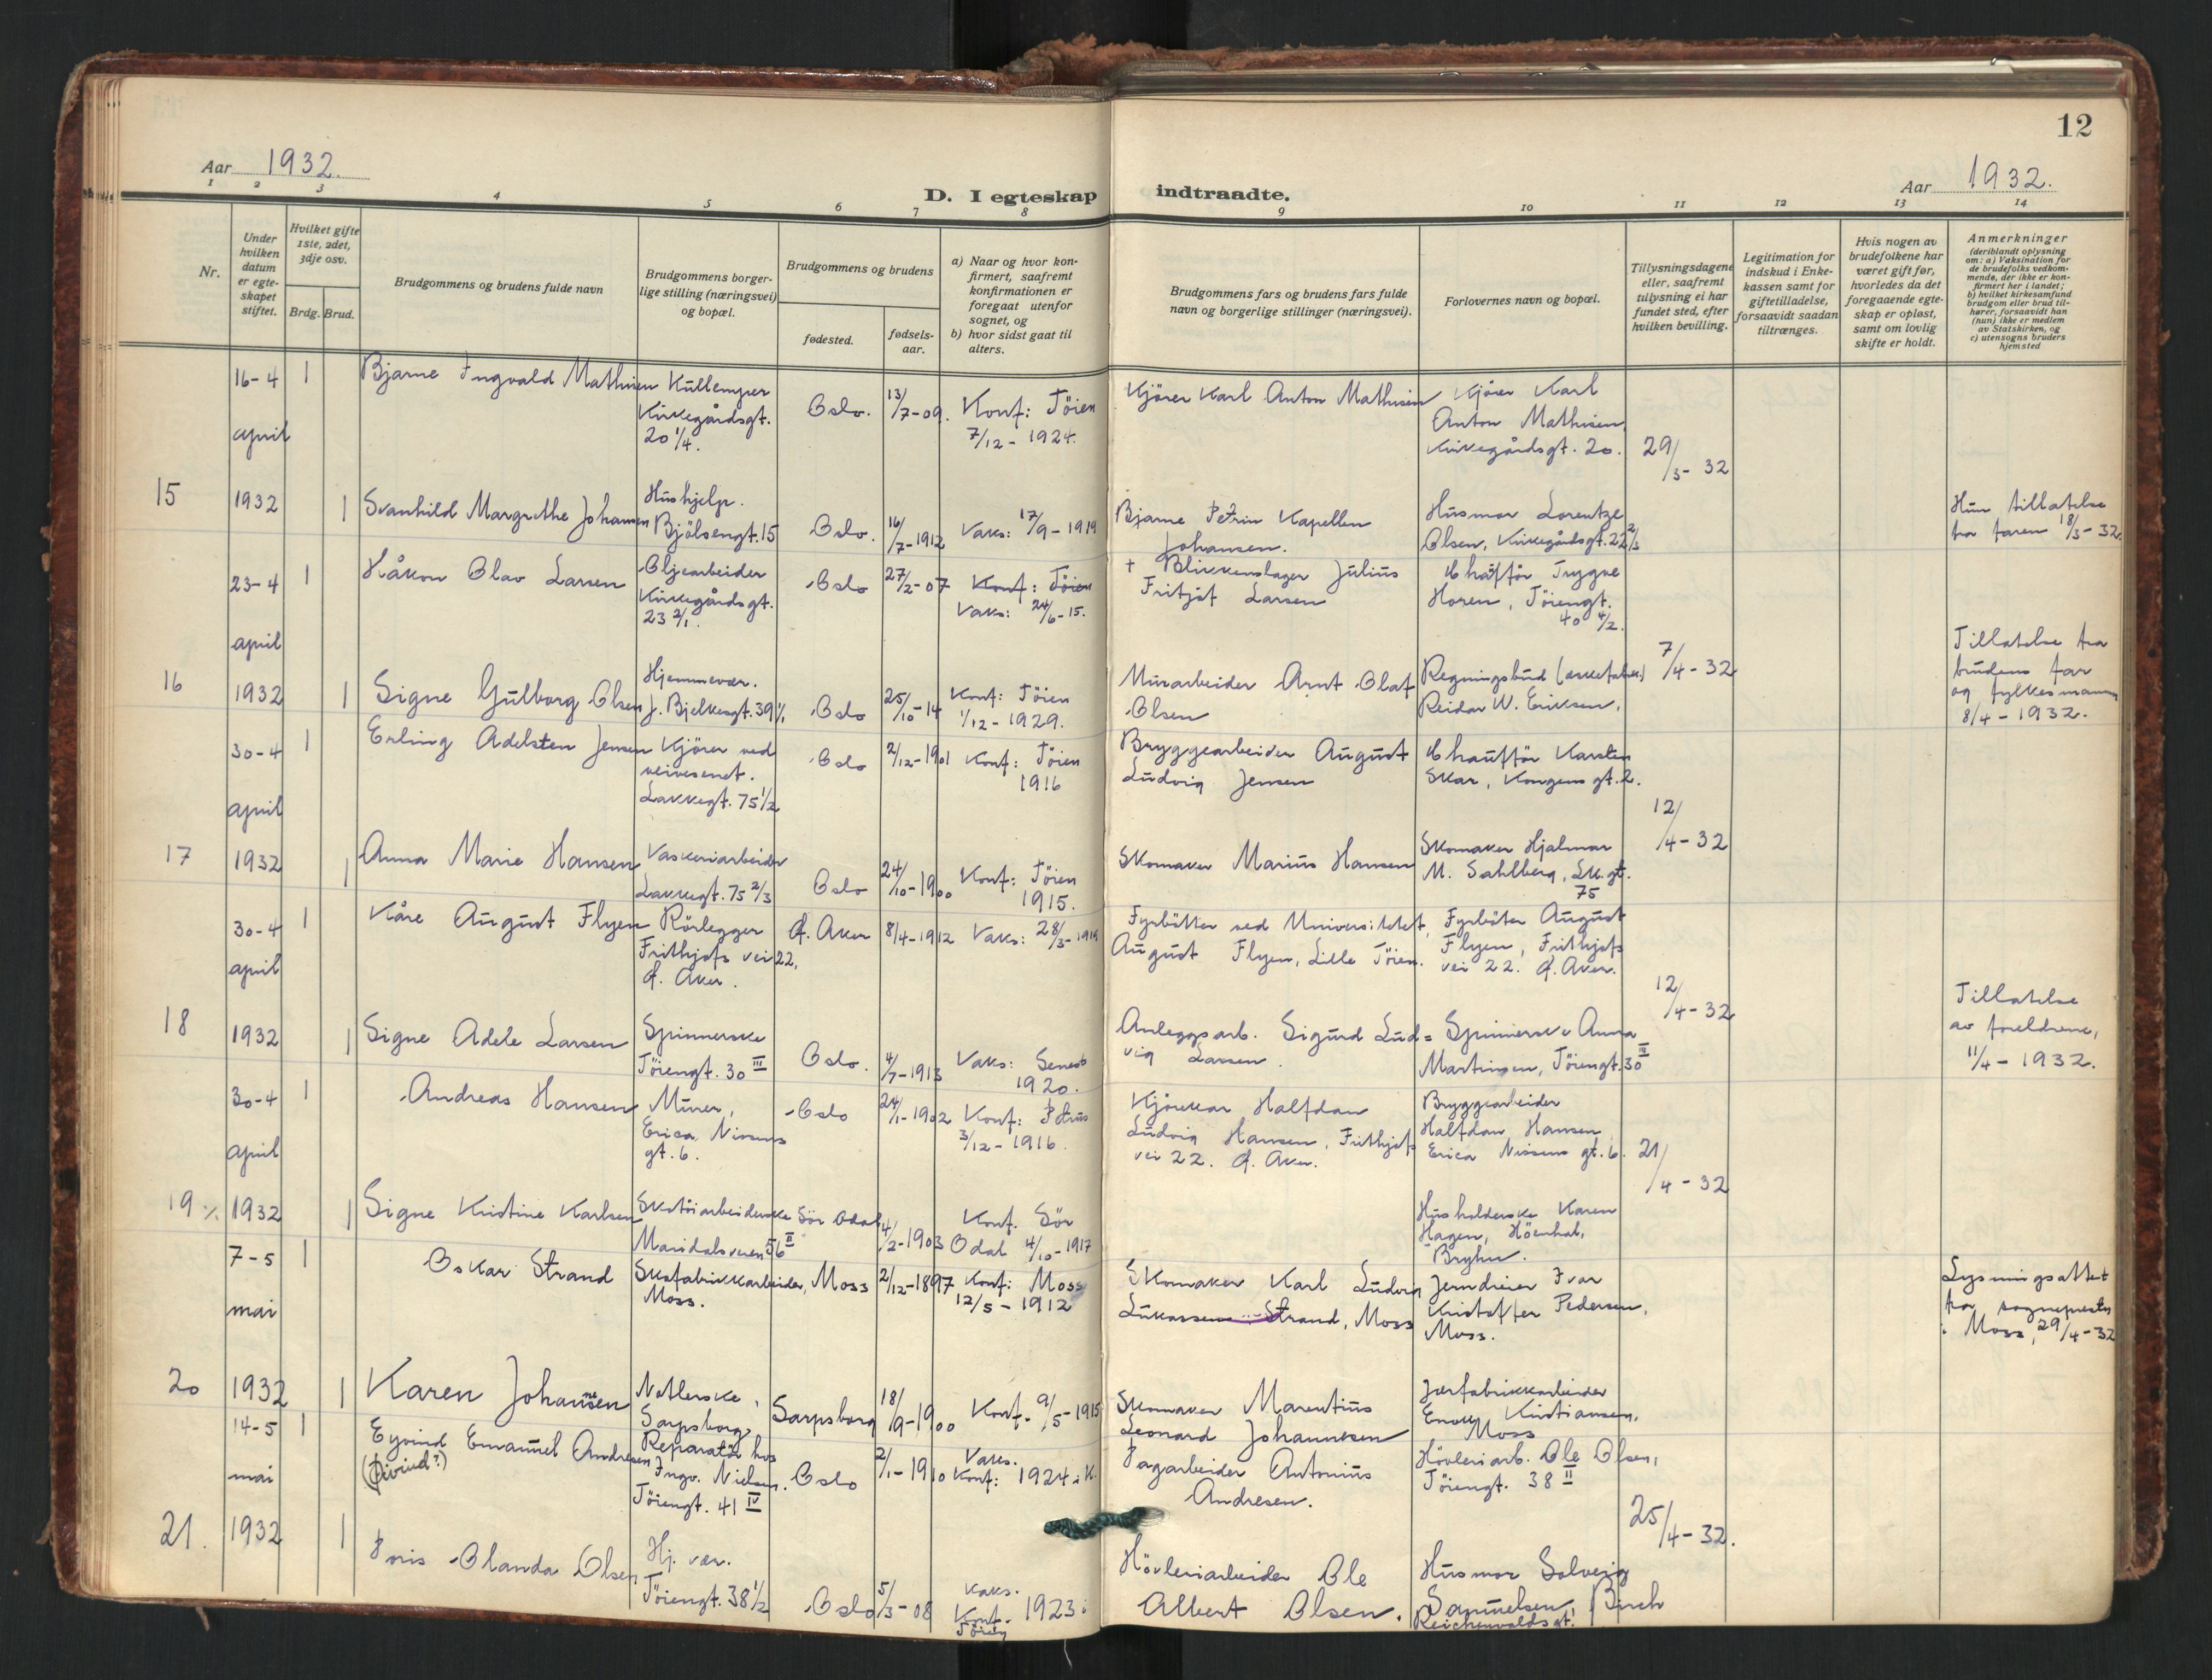 12
Aar 1932.
D. I egteskap indtraadte.
Aar 1932.
1 2 3 4 5 6 7 8 9 10 11 12 13 14
Nr.
Under hvilken datum er egte-skapet stiftet.
Hvilket gifte 1ste, 2det, 3dje osv.
Brdg. Brud.
Brudgommens og brudens fulde navn
Brudgommens borger-
lige stilling (næringsvei)
og bopæl.
Brudgommens og brudens
fødested.
fødsels-
aar.
a) Naar og hvor kon-
firmert, saafremt
konfirmationen er
foregaat utenfor
sognet, og
b) hvor sidst gaat til
alters.
Brudgommens fars og brudens fars fulde
navn og borgerlige stillinger (næringsvei).
Forlovernes navn og bopæl.
Tillysningsdagene
eller, saafremt
tillysning ei har
fundet sted, efter
hvilken bevilling.
Legitimation for
indskud i Enke-
kassen samt for
giftetilladelse,
forsaavidt saadan
tiltrænges.
Hvis nogen av
brudefolkene har
været gift før,
hvorledes da det
foregaaende egte-
skap er opløst,
samt om lovlig
skifte er holdt.
Anmerkninger
(deriblandt oplysning
om: a) Vaksination for
de brudefolks vedkom-
mende, der ikke er kon-
firmert her i landet;
b) hvilket kirkesamfund
brudgom eller brud til-
hører, forsaavidt han
(hun) ikke er medlem
av Statskirken, og
c) utensogns bruders
hjemsted
15
16-4
april
1932
1
Bjarne Ingvald Mathisen
Kullemper
Kirkegårdsgt.
20 1/4.
Oslo.
13/7-09.
Konf: Töien
7/12 - 1924.
Kjörer Karl Anton Mathisen
Kjörer Karl
Anton Mathisen,
Kirkegårdsgt. 20.
29/3 - 32
1
Svanhild Margrethe Johansen
Hushjelp.
Bjölsengt. 15
Oslo.
16/7-1912
Vaks: 17/9 - 1919
Bjarne Petrin Kapellen
Johansen.
Husmor Lorentze
Olsen, Kirkegårdsgt. 22 2/3
Hun tillatelse
fra faren 18/3 - 32.
16
23-4
april
1932
1
Håkon Olav Larsen
Oljearbeider
Kirkegårdsgt.
23 2/1.
Oslo
27/2-07
Konf: Töien
Vaks: 24/6 - 15.
† Blikkenslager Julius
Fritjof Larsen
Chafför Trygve
Horen, Töiengt.
40 4/2.
7/4 - 32
1
Signe Gulborg Olsen
Hjemmevær.
J. Bjelkesgt. 39 1/1
Oslo
25/10-14
Konf: Töien
1/12 - 1929.
Murarbeider Arnt Olaf
Olsen
Regningsbud
Reidar W. Eriksen,
Tillatelse fra
brudens far
og fylkesmannen
8/4 - 1932.
17
30-4
april
1932
1
Erling Adelsten Jensen
Kjörer ved
veivesenet.
Lakkegt. 75 1/2
Oslo
2/12-1901
Konf: Töien
1916
Bryggearbeider August
Ludvig Jensen
Chaufför Karsten
Skar, Kongens gt. 2.
12/4 - 32
1
Anna Marie Hansen
Vaskeriarbeider
Lakkegt. 75 2/3
Oslo
24/10-1900
Konf: Töien
1915.
Skomaker Marius Hansen
Skomaker Hjalmar
M. Sahlberg, Lk. gt.
75
18
30-4
april
1932
1
Kåre August Flyen
Rörlegger
Frithjofs vei 22,
Ö. Aker.
Ö. Aker
8/4-1912
Vaks: 28/3 - 1914
Fyrböter ved Universitetet,
August Flyen, Lille Töien.
Fyrböter August
Flyen, Frithjofs
vei 22. Ö. Aker.
12/4 - 32
1
Signe Adele Larsen
Spinnerske
Töiengt. 30 III
Oslo.
4/7-1913
Vaks: Senest
1920.
Anleggsarb. Sigurd Lud=
vig Larsen.
Spinnerske Anna
Martinsen, Töiengt. 30 III
Tillatelse
av foreldrene,
11/4 - 1932.
19 ·/.
30-4
april
1932
1
Andreas Hansen
Murer,
Erica Nissens
gt. 6.
Oslo
24/1-1902
Konf: Petrus
3/12 - 1916.
Kjörekar Halfdan
Ludvig Hansen, Frithjofs
vei 22. Ö. Aker.
Bryggearbeider
Halfdan Hansen
Erica Nissens gt. 6.
21/4 - 32
1
Signe Kristine Karlsen
Skotöiarbeiderske
Maridalsveien 56 II
Sör Odal
4/2-1903
Konf. Sör
Odal 4/10 - 1917
Husholderske Karen
Hagen, Höenhal,
Bryhn.
20
7-5
mai
1932
1
Oskar Strand
Skofabrikkarbeider,
Moss.
Moss
2/12-1897
Konf: Moss
12/5 - 1912
Skomaker Karl Ludvig
Lukassen Strand, Moss
Jerndreier Ivar
Kristoffer Pedersen,
Moss.
Lysningsattest
fra sogneprest
i Moss, 29/4 - 32
1
Karen Johannesen
Natlerske,
Sarpsborg
Sarpsborg
18/9-1900
Konf. 9/5 - 1915
Skomaker Marentius
Leonard Johannesen
Enok Kristiansen,
Moss
21.
14-5
mai
1932
1
Eyvind Emanuel Andresen
(Eivind?)
Reparatör hos
Ingv. Nielsen.
Töiengt. 41 IV
Oslo
2/1-1910
Vaks.
Konf: 1924 i K.
Jagarbeider Antonius
Andresen.
Hövleriarb. Ole Olsen,
Töiengt. 38 II
25/4 - 32.
1
Olanda Olsen
Hj. vær.
Töiengt. 38 1/2
Oslo
5/3-08
Vaks.
Konf. 1923 i
Töien
Hövleriarbeider Ole
Albert Olsen.
Husmor Solveig
Samuelsen, Birch
Reichenwaldsgt.